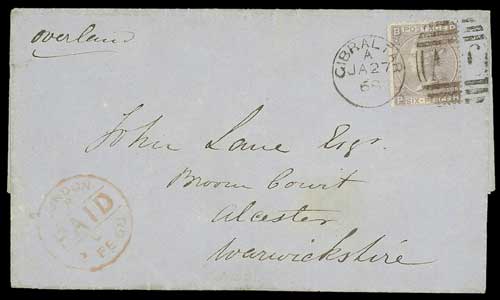 overland
GIBRALTAR
A
JA 27
68
POSTAGE
SIX PENCE
John Lane Esqr.
Broom Court
Alcester
Warwickshire
LONDON
PAID